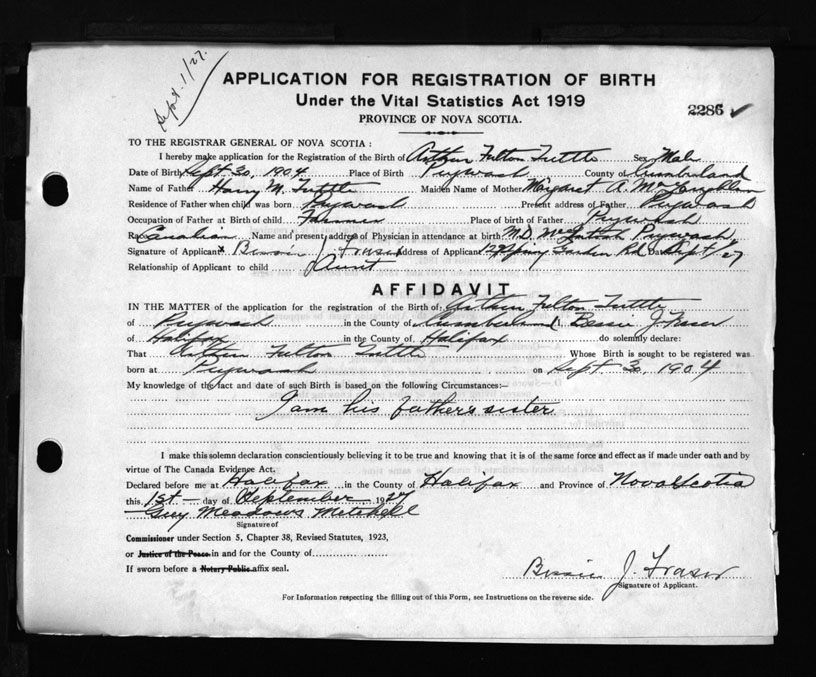 Sept. 1/27.
APPLICATION FOR REGISTRATION OF BIRTH
Under the Vital Statistics Act 1919
2286
PROVINCE OF NOVA SCOTIA.
TO THE REGISTRAR GENERAL OF NOVA SCOTIA :
I hereby make application for the Registration of the Birth of Arthur Fulton Tuttle Sex Male
Date of Birth Sept. 30, 1904 Place of Birth Pugwash County of Cumberland
Name of Father Harry M. Tuttle Maiden Name of Mother Margaret A. McLaughlin
Residence of Father when child was born Pugwash Present address of Father Pugwash
Occupation of Father at Birth of child Farmer Place of birth of Father Pugwash
Ra Canadian Name and present address of Physician in attendance at birth M.D. Pugwash
Signature of Applicant x Bessie J. Fraser Address of Applicant Spring Garden Rd Date Sept 1/27
Relationship of Applicant to child Aunt
AFFIDAVIT
IN THE MATTER of the application for the registration of the Birth of: Arthur Fulton Tuttle
of Pugwash in the County of Cumberland I, Bessie J. Fraser
of Halifax in the County of Halifax do solemnly declare:
That Arthur Fulton Tuttle Whose Birth is sought to be registered was
born at Pugwash on Sept 30, 1904
My knowledge of the fact and date of such Birth is based on the following Circumstances:—
I am his fathers sister
I make this solemn declaration conscientiously believing it to be true and knowing that it is of the same force and effect as if made under oath and by
virtue of The Canada Evidence Act.
Declared before me at Halifax in the County of Halifax and Province of Nova Scotia
this 1st day of September 1927
Guy Meadows Mitchell
Signature of
Commissioner under Section 5, Chapter 38, Revised Statutes, 1923,
or Justice of the Peace in and for the County of
If sworn before a Notary Public affix seal.
Bessie J. Fraser
Signature of Applicant.
For Information respecting the filling out of this Form, see Instructions on the reverse side.